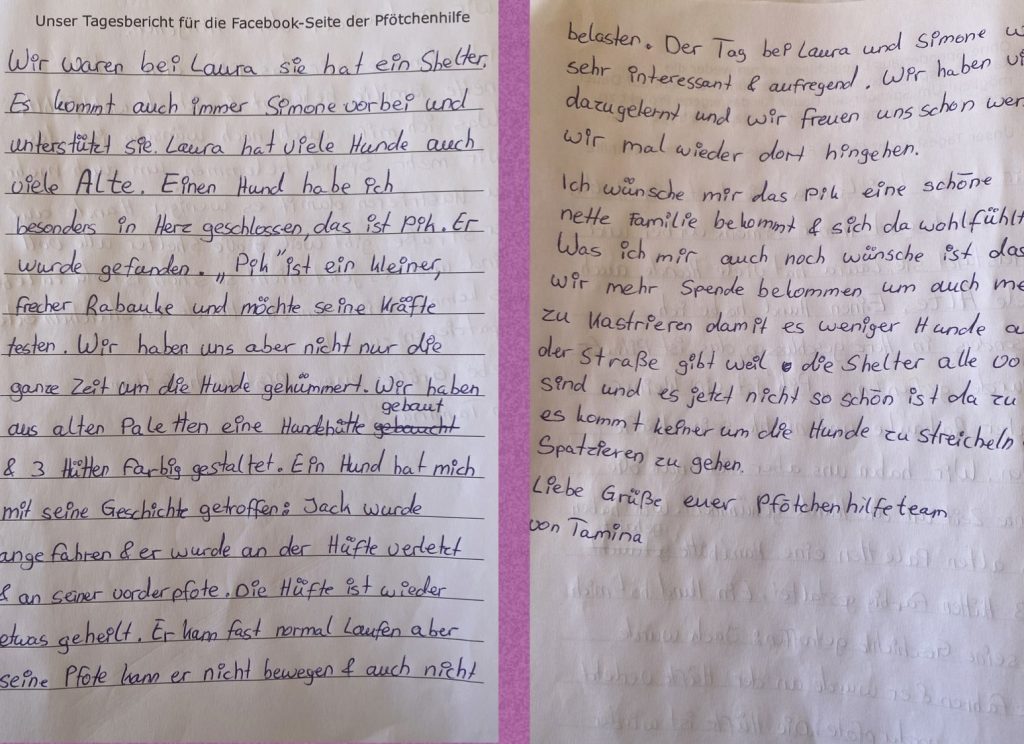 Unser Tagesbericht für die Facebook-Seite der Pfötchenhilfe
Wir waren bei Laura sie hat ein Shelter.
Es kommt auch immer Simone vorbei und
unterstützt sie. Laura hat viele Hunde auch
viele Alte. Einen Hund habe ich
besonders in Herz geschlossen, das ist Pih. Er
wurde gefunden. „Pih" ist ein kleiner,
frecher Rabauke und möchte seine Kräfte
testen. Wir haben uns aber nicht nur die
ganze Zeit um die Hunde gekümmert. Wir haben
gebaut
aus alten Paletten eine Hundehütte gebaucht
& 3 Hütten farbig gestaltet. Ein Hund hat mich
mit seine Geschichte getroffen: Jack wurde
angefahren & er wurde an der Hüfte verletzt
& an seiner vorderpfote. Die Hüfte ist wieder
etwas geheilt. Er kann fast normal Laufen aber
seine Pfote kann er nicht bewegen & auch nicht
belasten. Der Tag bei Laura und Simone w
sehr interessant & aufregend. Wir haben vi
dazugelernt und wir freuen uns schon wen
wir mal wieder dort hingehen.
Ich wünsche mir das Pih eine schöne
nette Familie bekommt & sich da wohlfühlt
Was ich mir auch noch wünsche ist das
wir mehr Spende bekommen um auch me
zu Kastrieren damit es weniger Hunde a
der Straße gibt weil die Shelter alle vo
sind und es jetzt nicht so schön ist da zu
es kommt keiner um die Hunde zu streicheln
Spatzieren zu gehen.
Liebe Grüße euer Pfötchenhilfeteam
von Tamina